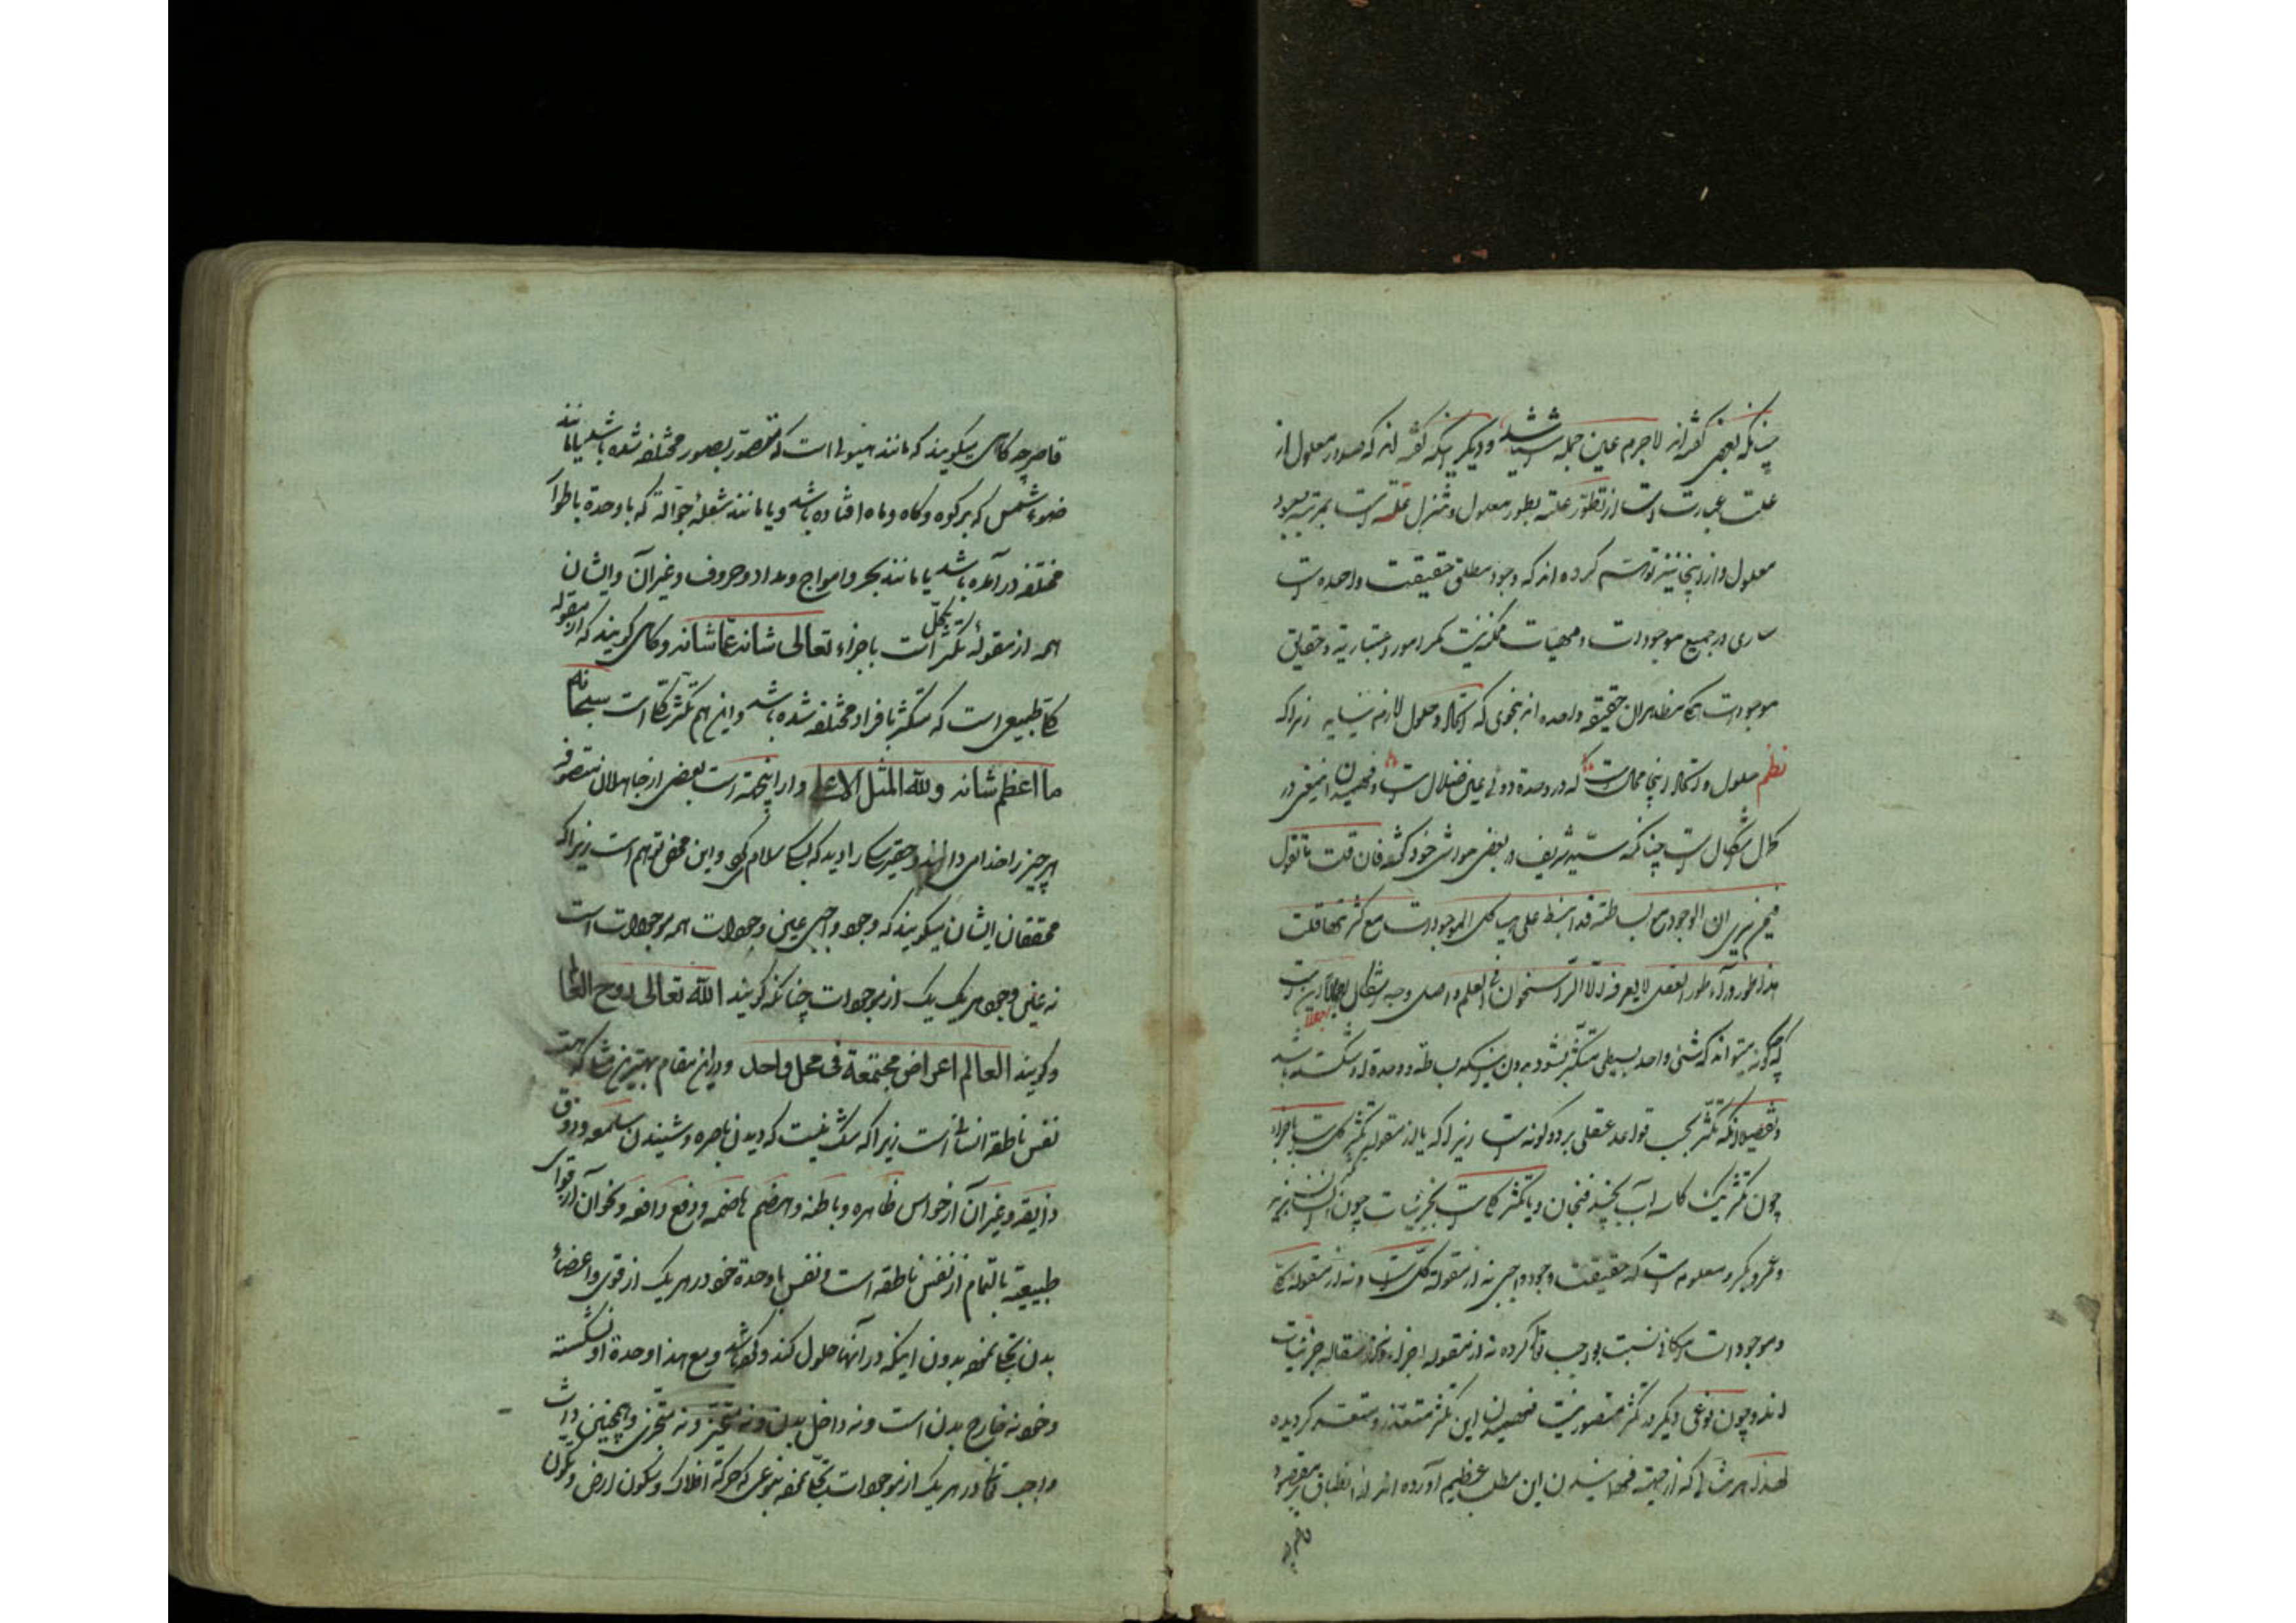 چنانکه بعضی گفته‌اند لاجرم عین جمله اشیا شد و دیگر اینکه گفته اند که صدور معلول از
علت عبارت است از تطور علت بطور معلول و تنزل علت است بمرتبه
معلول و از اینجا نیز توهم کرده اند که وجود مطلق حقیقت واحده است
ساری در جمیع موجودات و مهیات ممکنه نیست مگر امور اعتباریة و حقایق
موجودات مظاهر آن حقیقة واحده اند بنحوی که اتحاد و حلول لازم نیاید زیرا که
نظم حلول و اتحاد اینجا محال است که در وحدة دوئی عین ضلال است و فهمیدن این معنی در
کمال اشکال است چنانکه سید شریف در بعضی حواشی خود گفته فان قلت ما تقول
فیمن یری ان الوجود مع بساطته قد انبسط علی هیاکل الموجودات مع کثرتها قلت
هذا طور وراء طور العقل لا یعرفه الا الراسخون فی العلم و اصل وجه اشکال اجمالا این است
که چگونه میتواند که شئ واحد بسیطی متکثر بشود بدون اینکه بساطة و وحدة او شکسته باشد
و تفصیلا آنکه تکثر بحسب قواعد عقلی بر دو گونه است زیرا که یا از مقوله تکثر کل است باجزاء
چون تکثر یک کاسه آب بچند فنجان و یا تکثر کلی است بجزئیات چون انسان بزید
و عمرو و بکر و معلوم است که حقیقت وجود واجبی نه از مقولة کل است و نه از مقولة کلی
و موجودات امکانی نسبت بواجب تعالی کرده نه از مقوله اجزاء و نه از مقاله جزئیات
اند و چون نوعی دیگر در تکثر متصور نیست فهمیدن این تکثر متعذر و متعسر گردیده
لهذا هر مثالی که از جهت فهمانیدن این مطلب عظیم آورده اند از انطباق بر مقصود
قاصر چه
قاصر چه گاهی میگویند که مانند هیولی است که متصور بصور مختلفه شده باشد یا مانند
ضوء شمس که بر کوه و کاه و ماه افتاده باشد و یا مانند شعلهٔ جوّالة که با وحدة باطوار
مختلفه در آمده باشد یا مانند بحر و امواج و مداد و حروف و غیر آن و ایشان
همه از مقولهٔ تکثر است باجزاء تعالی شانه عما شانه و گاهی گویند که از مقوله
کلی طبیعی است که متکثر بافراد مختلفه شده باشد و این هم تکثر کلی است سبحانه
ما اعظم شانه ولله المثل الاعلی و از اینجهة است بعضی از جاهلان متصوفه
هر چیز را خدا می دانند و حقیر را دیده که بسگ سلام کرد و این محض توهم است زیرا که
محققان ایشان میگویند که وجود واجبی عین وجودات همه موجودات است
نه عین وجود هر یک یک از موجودات چنانکه گویند الله تعالی روح العالم
و گویند العالم اعراض مجتمعة فی محل واحد و در این مقام بهترین مثالها
نفس ناطقه انسانی است زیرا که شک نیست که دیدن باصره و شنیدن سامعه و ذوق
ذایقه و غیر آن از حواس ظاهره و باطنه و هضم هاضمه و دفع دافعه و نحو آن از قوای
طبیعة بالتمام از نفس ناطقه است و نفس با وحدة خود در هر یک از قوی و اعضاء
بدن تجلی نموده بدون اینکه در آنها حلول کند و مع هذا وحدة او نشکسته
و خود نه خارج بدن است و نه داخل بدن و نه متحیز و نه متجزی و همچنین ذات
واجب تعالی در هر یک از موجودات تجلی نموده بنوعی که حرکة افلاک و سکون ارض و تکون